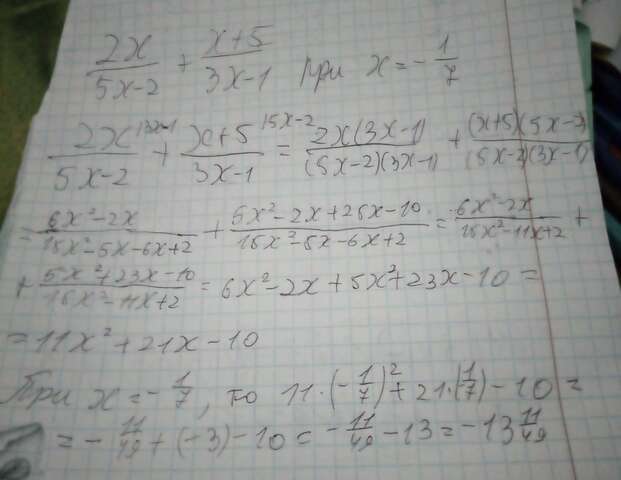 2x/(5x-2) + (x+5)/(3x-1) при x = -1/7
2x/(5x-2) |3x-1 + (x+5)/(3x-1) |5x-2 = 2x(3x-1)/((5x-2)(3x-1)) + (x+5)(5x-2)/((5x-2)(3x-1))
= (6x²-2x)/(15x²-5x-6x+2) + (5x²-2x+25x-10)/(15x²-5x-6x+2) = (6x²-2x)/(15x²-11x+2) +
+ (5x²+23x-10)/(15x²-11x+2) = 6x²-2x+5x²+23x-10 =
= 11x²+21x-10
При x = -1/7, то 11·(-1/7)²+21·(1/7)-10 =
= -11/49 + (-3) - 10 = -11/49 - 13 = -13 11/49